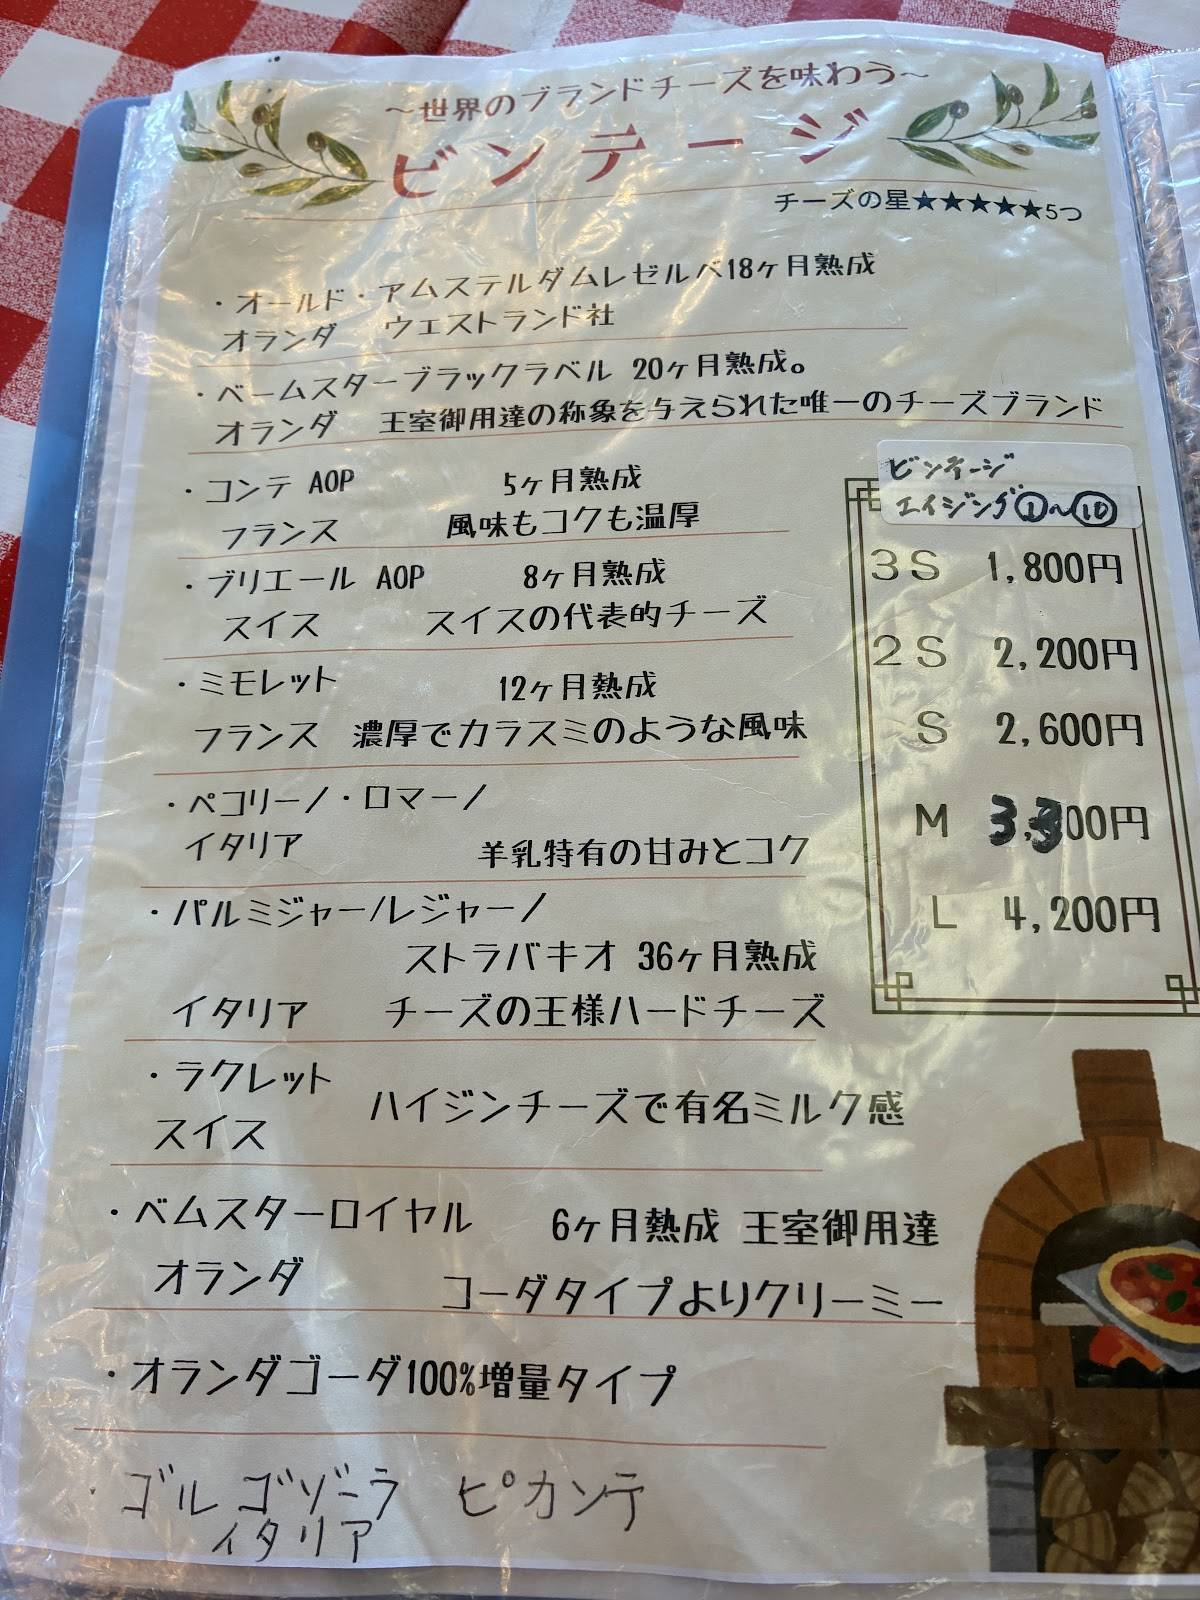 ～世界のブランドチーズを味わう～
ビンテージ
チーズの星★★★★★5つ
・オールド・アムステルダムレゼルベ18ヶ月熟成
オランダ ウェストランド社
・ベームスターブラックラベル 20ヶ月熟成。
オランダ 王室御用達の称象を与えられた唯一のチーズブランド
・コンテ AOP 5ヶ月熟成
フランス 風味もコクも温厚
・ブリエール AOP 8ヶ月熟成
スイス スイスの代表的チーズ
・ミモレット 12ヶ月熱成
フランス 濃厚でカラスミのような風味
・ペコリーノ・ロマーノ
イタリア 羊乳特有の甘みとコク
・パルミジャーノレジャーノ
ストラバキオ 36ヶ月熟成
イタリア チーズの王様ハードチーズ
・ラクレット
スイス ハイジンチーズで有名ミルク感
・ベムスターロイヤル 6ヶ月熱成 王室御用達
オランダ コーダタイプよりクリーミー
・オランダゴーダ100%増量タイプ
・ゴルゴゾーラ ピカンテ
イタリア
ビンテージ
エイジング①～⑩
3S 1,800円
2S 2,200円
S 2,600円
M 3,300円
L 4,200円